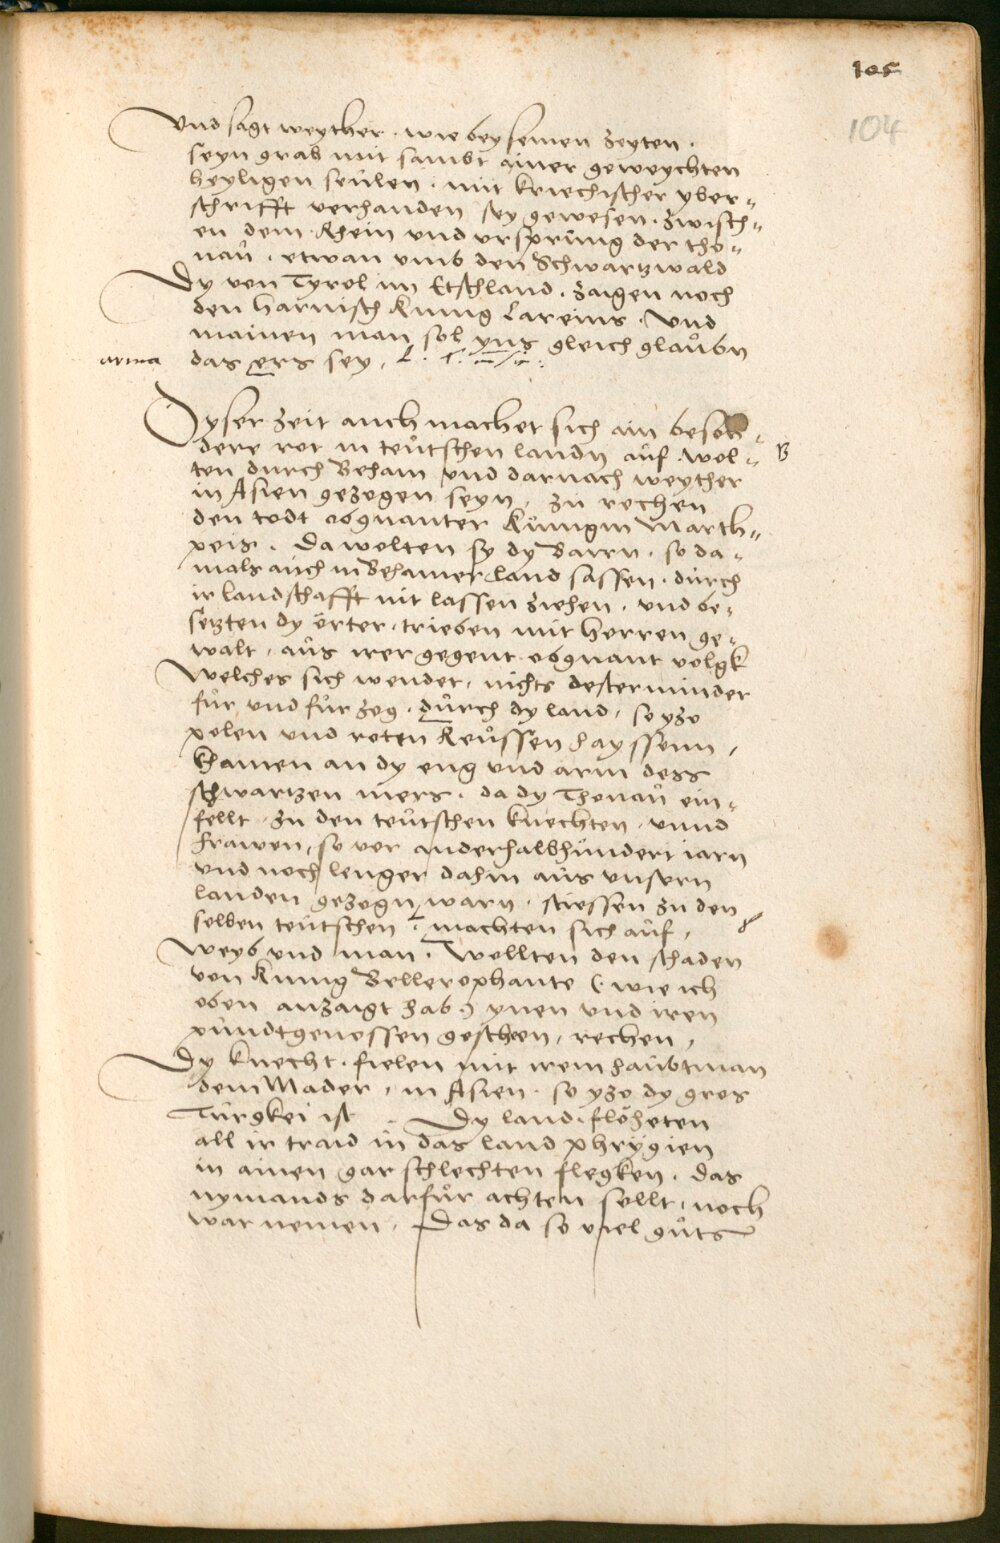 105
104
Und sagt weyther · wie bey seinen zeyten ·
seyn grab mit sambt ainer geweychten
heyligen seulen · mit kriechischer yber=
schrifft verhanden sey gewesen · zwisch=
en dem Rhein und ursprung der tho=
nau · etwan umb den Schwartzwald
Dy von Tyrol im Etschland · zaigen noch
den harnisch Kunig Lareins · Und
mainen man sol yns gleich glaubn
arma das ers sey ·
Dyser zeit auch machet sich ain beson=
dere rot in teutschen landn auf · wol= B
ten durch Beham und darnach weyther
in Asien gezogen seyn, zu rechen
den todt obgnanter Kunigin Marth=
peis · Da wolten sy dy Barrn · so da=
mals auch in Behamer land sassen · durch
ir landschafft nit lassen ziehen · und be=
setzten dy örter · trieben mit herren ge=
walt, aus irer gegent obgnant volgk
Welches sich wendet, nichts dester minder
für und für zog · durch dy land, so yzo
polen und roten Reussen hayssenn,
khamen an dy eng und arm dess
schwartzen mers · da dy Thonau ein=
fellt · zu den teutschen knechten · unnd
frawen, so vor anderhalbhundert iarn
und noch lenger dahin aus unsern
landen gezogn warn · stiessen zu den
selben teutschen · machten sich auf,
weyb und man · Wollten den schaden
von Kunig Bellerophante (: wie ich
oben anzaigt hab :) ynen und iren
pundtgenossen gescheen, rechen,
Dy knecht · fielen mit irem haubtman
dem Mader, in Asien · so yzo dy gros
Türgkei ist · Dy land · flöheten
all ir traid in das land phrygien
in ainen gar schlechten flegken · das
nymands darfür achten sollt, noch
war nemen, Das da so viel guts